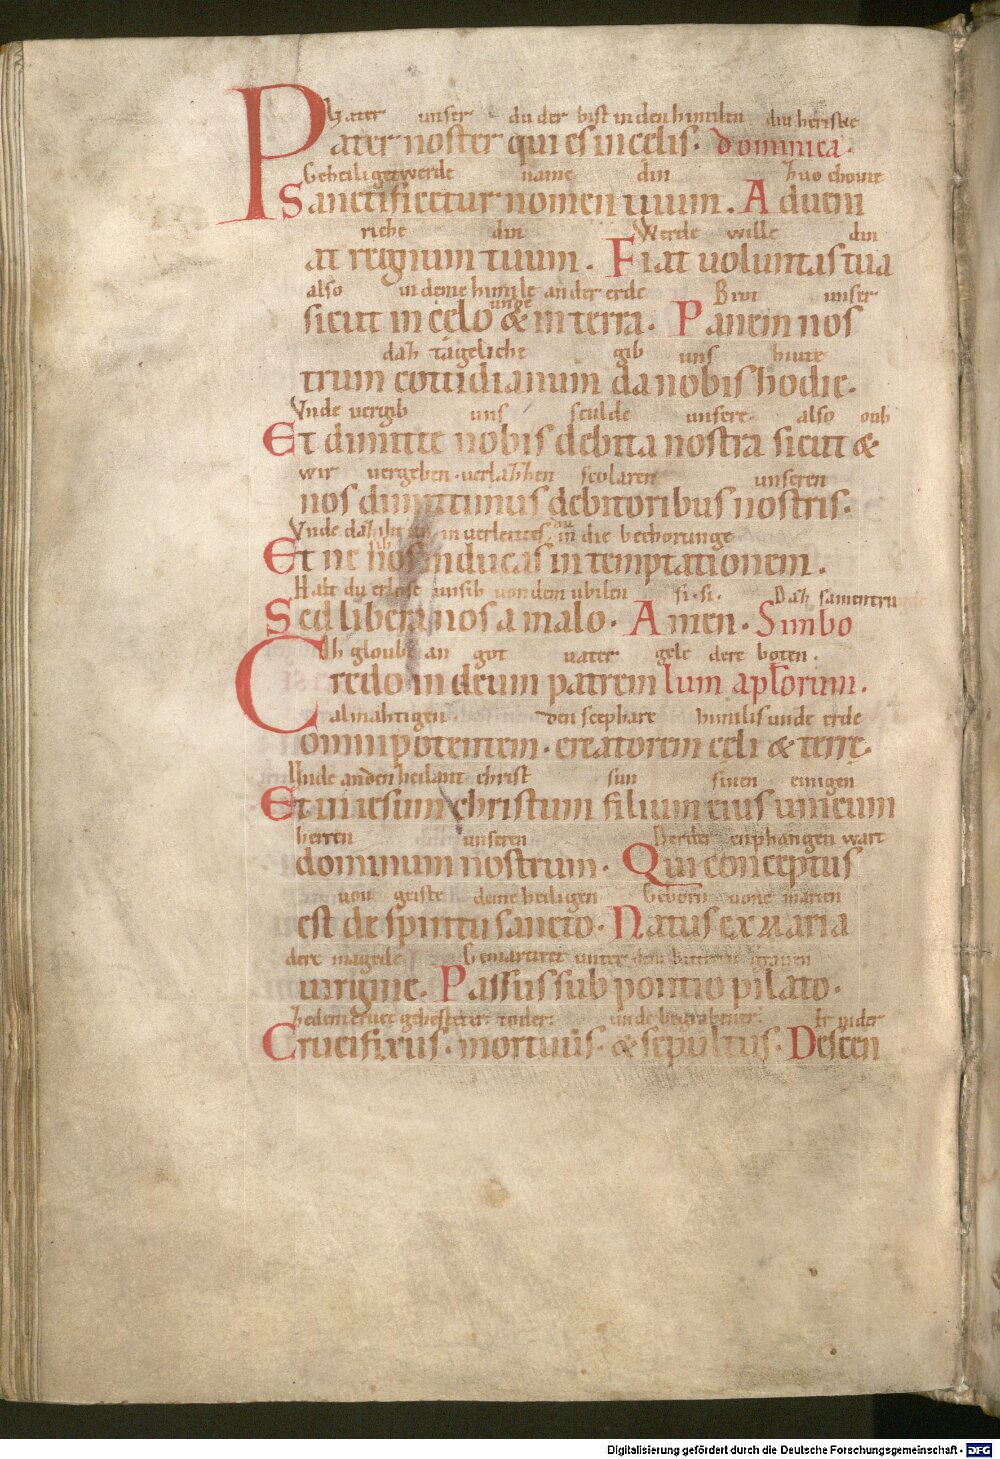 Vater unser du der bist in den himilen diu heriske
Pater noster qui es in celis. dominica.
Geheiliget werde name din zuo chome
Sanctificetur nomen tuum. Adueni
riche din Werde wille din
at regnum tuum. Fiat uoluntas tua
also in deme himile an der erde Brot unser
unde
sicut in celo & in terra. Panem nos
daz tageliche gib uns hiute
trum cottidianum da nobis hodie.
Vnde vergib uns sculde unsere. also oub
Et dimitte nobis debita nostra sicut &
wir vergeben. verlazzen scolaren unseren
nos dimittimus debitoribus nostris.
Vnde daz in verleites in die bechorunge
Et ne nos inducas in temptationem.
Halt du erlose unsih von dem ubilen si. si. Daz samentru
Sed libera nos a malo. Amen. Simbo
Ih gloube an got uater gele dere boten.
Credo in deum patrem lum aptorum.
almahtigen. den scephare himilis unde erde
omnipotentem. creatorem celi & terre.
Unde an den heilant christ sun sinen einigen
Et in iesum christum filium eius unicum
herren unseren Der der enphangen wart
dominum nostrum. Qui conceptus
von geiste deme heiligen Geborn vone marien
est de spiritu sancto. Natus ex maria
dere magede Gemartiret unter
uirgine. Passus sub pontio pilato.
toder. unde begrabener. Er nider
Crucifixus. mortuus. & sepultus. Descen
Digitalisierung gefördert durch die Deutsche Forschungsgemeinschaft - DFG